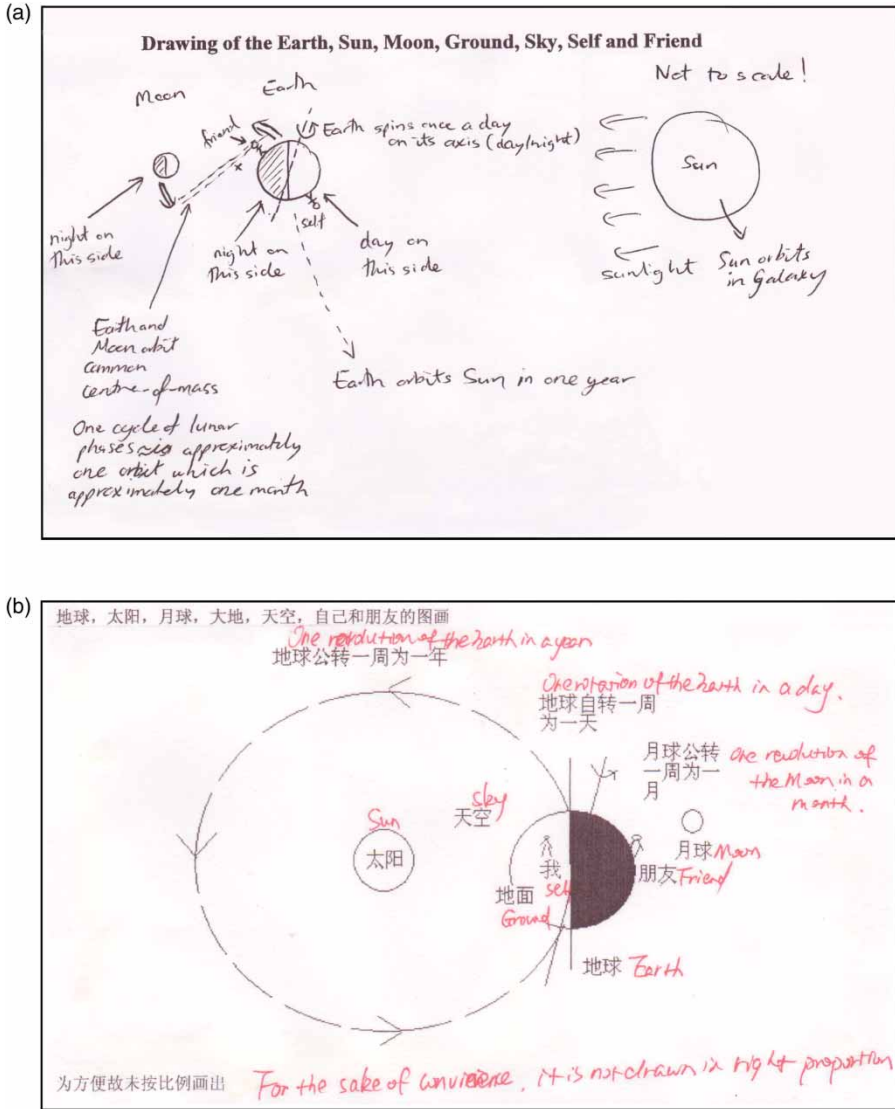 (a)
Drawing of the Earth, Sun, Moon, Ground, Sky, Self and Friend
Not to scale!
Moon
Earth
friend
Earth spins once a day
on its axis (day/night)
Sun
x
self
night on
this side
night on
this side
day on
this side
sunlight
Sun orbits
in Galaxy
Earth and
Moon orbit
common
centre-of-mass
Earth orbits Sun in one year
One cycle of lunar
phases is approximately
one orbit which is
approximately one month
(b)
地球，太阳，月球，大地，天空，自己和朋友的图画
One revolution of the Earth in a year
地球公转一周为一年
One rotation of the Earth in a day.
地球自转一周
为一天
月球公转
一周为一
月
One revolution of
the Moon in a
month.
Sun
太阳
sky
天空
我
self
地面
Ground
朋友 Friend
月球 Moon
地球 Earth
为方便故未按比例画出
For the sake of convinience, it is not drawn in right proportion